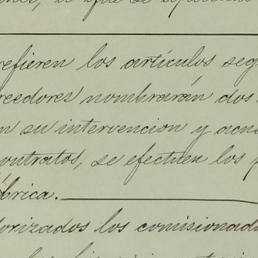 se efieren los artículos seg
reedores nombrarán dos
n su intervencion y acue
contratos, se efectuen los p
ábrica.
orizados los comisionad